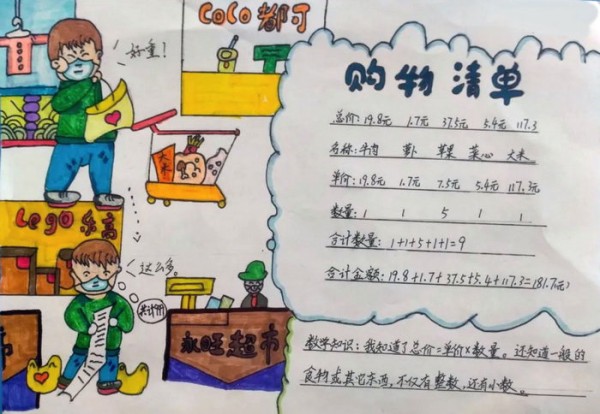 CoCo都可
好重!
购物清单
总价:19.8元 1.7元 37.5元 5.4元 117.3
名称:牛肉 苹果 菜心 大米
单价:19.8元 1.7元 7.5元 5.4元 117.3元
数量:1 1 5 1 1
合计数量:1+1+5+1+1=9
合计金额:19.8+1.7+37.5+5.4+117.3=181.7元)
大米
Lego乐高
这么多。
永旺超市
数学知识:我知道了总价=单价×数量。还知道一般的
食物或其它东西,不仅有整数,还有小数。